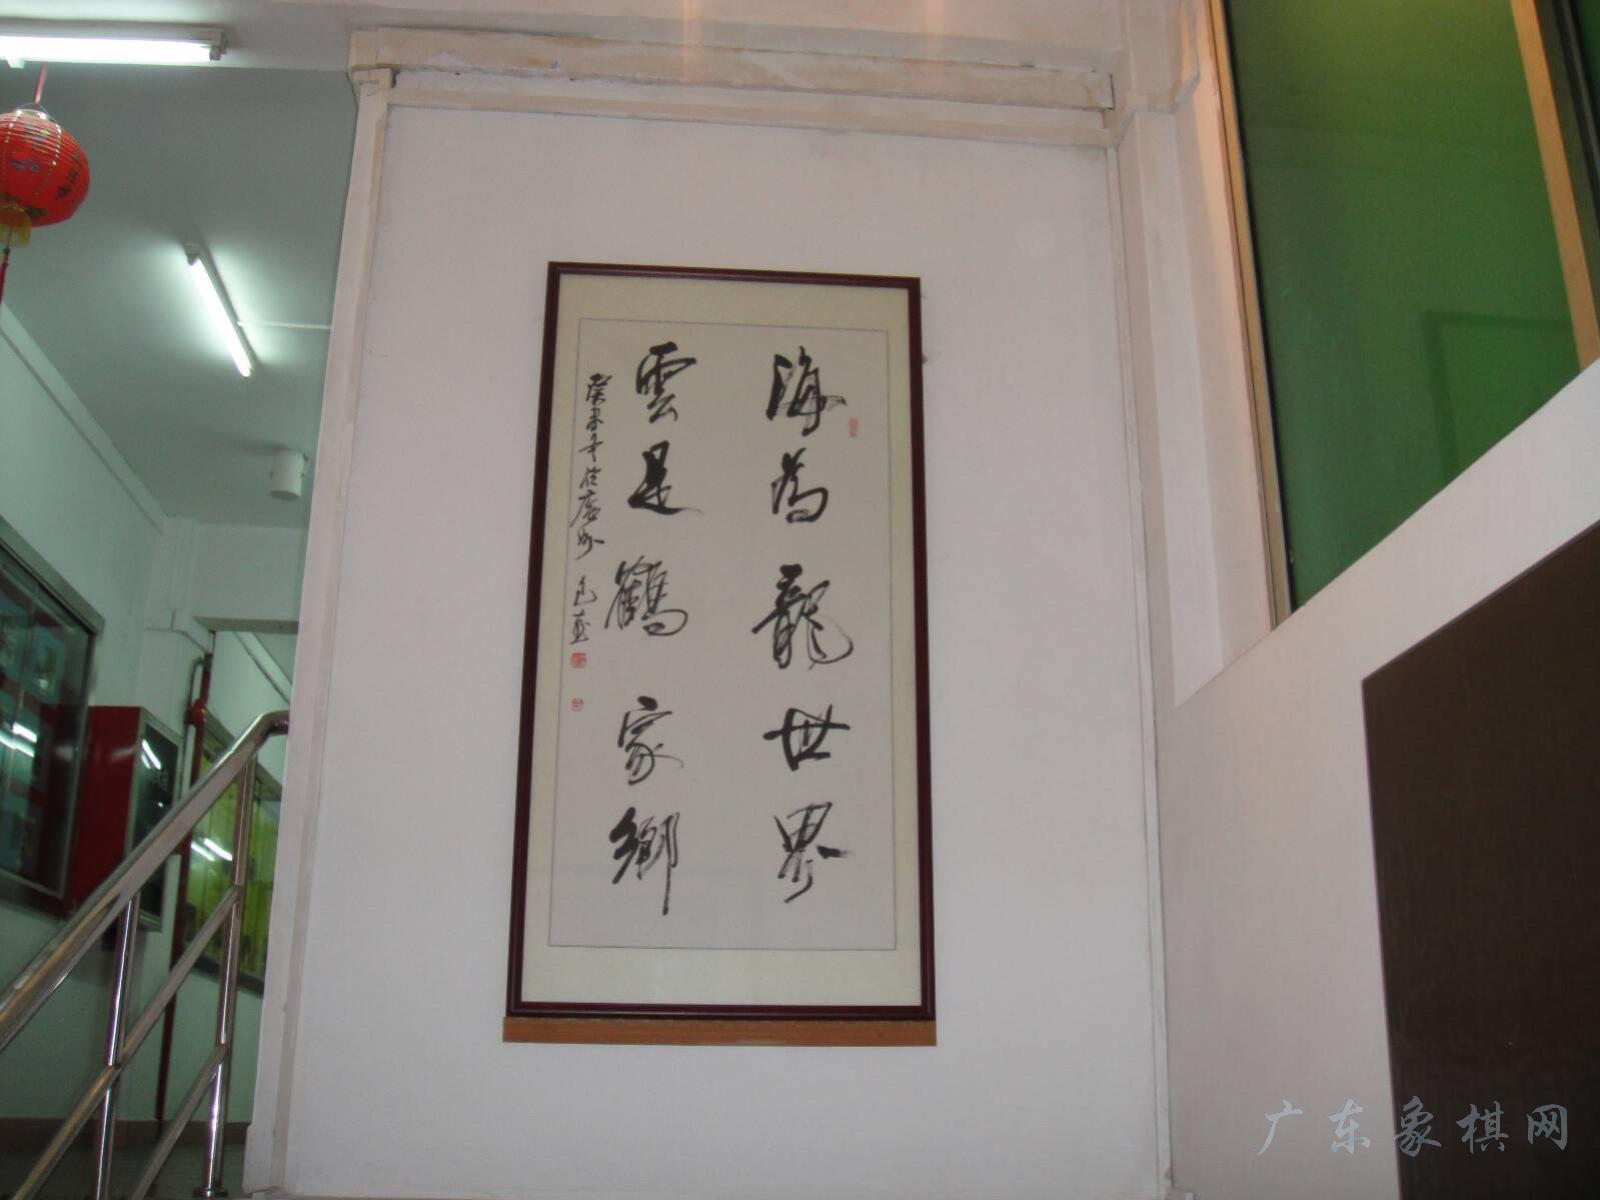 海為龍世界
雲是鶴家鄉
广东象棋网